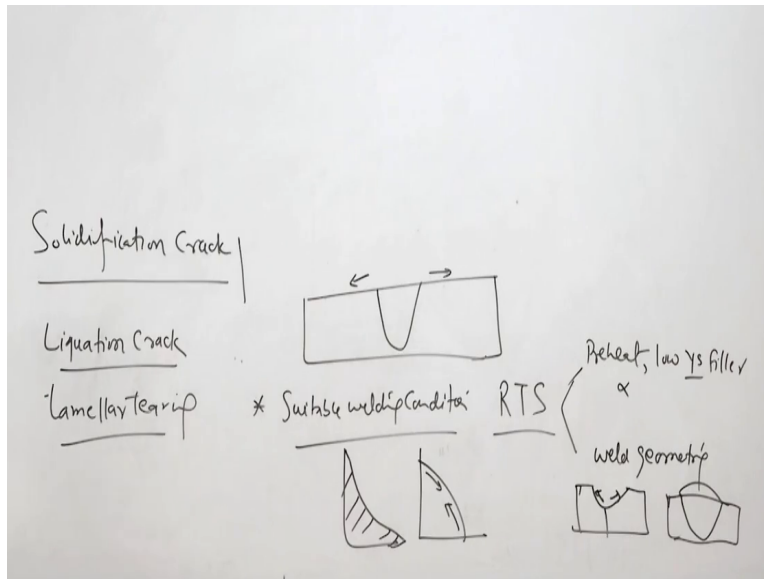 Solidification Crack
Liquation Crack
Lamellar Tearing
* Suitable welding Condition RTS
Preheat, low YS filler
∝
weld geometry